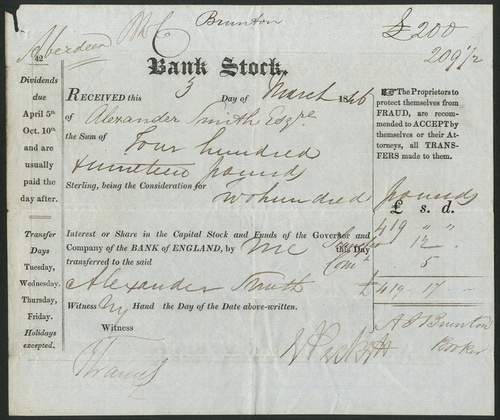 Aberdeen Brunton £200
209 1/2
42
Bank Stock.
Dividends
due
April 5th
Oct. 10th
and are
usually
paid the
day after.
RECEIVED this 3 Day of March 1846
of Alexander Smith Esqre
the Sum of Four hundred
& nineteen pounds
Sterling, being the Consideration for Two hundred pounds
☞ The Proprietors to
protect themselves from
FRAUD, are recom-
mended to ACCEPT by
themselves or their At-
torneys, all TRANS-
FERS made to them.
£ s. d.
419 " "
12
5
£419 - 17 - -
Transfer
Days
Tuesday,
Wednesday,
Thursday,
Friday.
Holidays
excepted.
Interest or Share in the Capital Stock and Funds of the Governor and
Company of the BANK of ENGLAND, by me this Day
transferred to the said
Alexander Smith
Witness My Hand the Day of the Date above-written.
Witness
A J Brunton
Broker